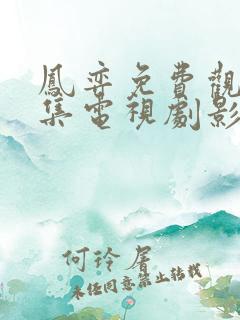 鳳弈免費觀
集電視劇影
何玲眉
未经同意禁止转载